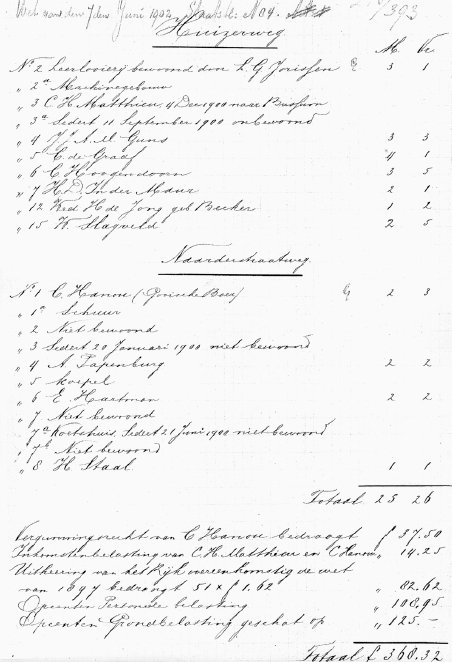 Wet van den 7den Juni 1902 Staatsbl. No 9. 1/393
Huizerweg
M. Vr.
No. 2 Leerlooierij bewoond door L. G. Jorissen G 3 1
„ 2a Machinegebouw
„ 3 C. H. Matthieu, 4 Dec 1900 naar Bussum
„ 3a Sedert 11 September 1900 onbewoond
„ 4 J. J. A. M. Guns 3 3
„ 5 E de Graaf 4 1
„ 6 C Hoogendoorn 3 5
„ 7 H. D. In der Maur 2 1
„ 12 Wed H de Jong geb Bakker 1 2
„ 15 W. Slagveld 2 5
Naarderstraatweg
No. 1 C. Hanou (Gooische Boer) G 2 3
„ 1a Schuur
„ 2 Niet bewoond
„ 3 Sedert 20 Januari 1900 niet bewoond
„ 4 A. Papenburg 2 2
„ 5 Koepel
„ 6 E. Hartman 2 2
„ 7 Niet bewoond
„ 7a Koetshuis, Sedert 21 Juni 1900 niet bewoond
„ 7b Niet bewoond
„ 8 H. Staal 1 1
Totaal 25 26
Vergunningsrecht van C Hanou bedraagt f 37.50
Inkomstenbelasting van C. H. Matthieu en C Hanou „ 14.25
Uitkeering van het Rijk overeenkomstig de wet
van 1897 bedraagt 51 x f 1.62 „ 82.62
Opcenten Personele belasting „ 108.95
Opcenten Grondbelasting geschat op „ 125. —
Totaal f 368.32